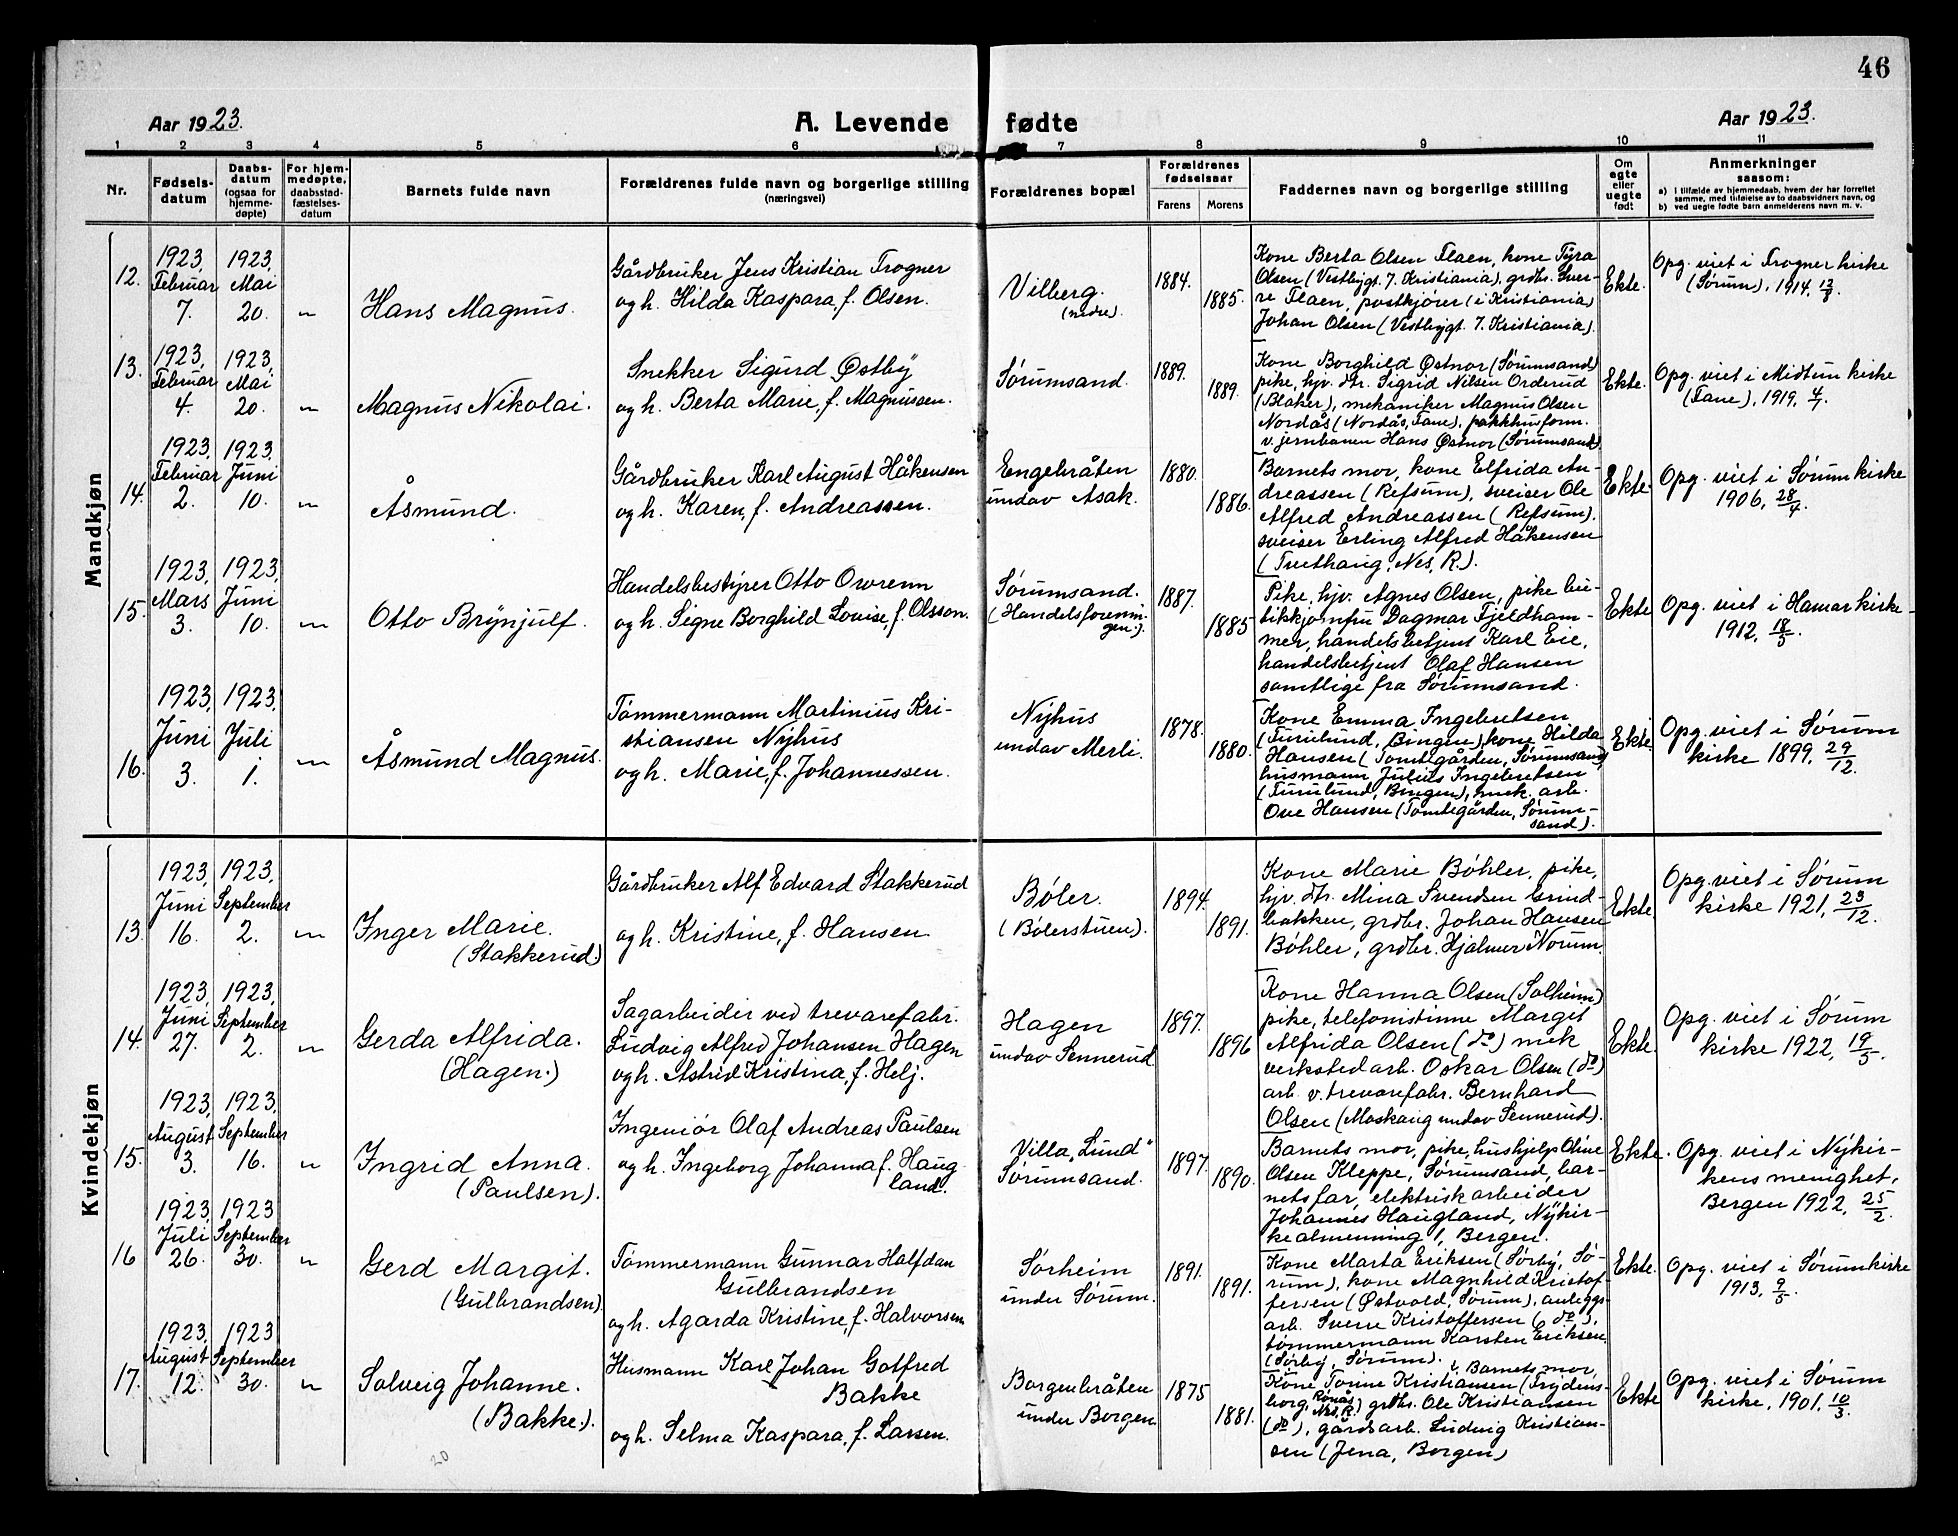 46
Aar 1923.
A. Levende fødte
Aar 1923.
1 2 3 4 5 6 7 8 9 10 11
Nr.
Fødsels-
datum
Daabs-
datum
(ogsaa for
hjemme-
døpte)
For hjem-
medøpte,
daabsstad-
fæstelses-
datum
Barnets fulde navn
Forældrenes fulde navn og borgerlige stilling
(næringsvei)
Forældrenes bopæl
Forældrenes
fødselsaar
Farens Morens
Faddernes navn og borgerlige stilling
Om
egte
eller
uegte
født
Anmerkninger
saasom:
a) I tilfælde av hjemmedaab, hvem der har forrettet
samme, med tilføielse av to daabsvidners navn, og
b) ved uegte fødte barn anmelderens navn m. v.
Mandkjøn
12.
1923,
Februar
7.
1923,
Mai
20.
"
Hans Magnus.
Gårdbruker Jens Kristian Trogner
og h. Hilda Kaspara, f. Olsen.
Vilberg.
(nedre).
1884.
1885.
Kone Berta Olsen Flaen, kone Tyra
Olsen (Vestbygt. 7, Kristiania), grdbr. Sver-
re Flaen, postkjører (i Kristiania)
Johan Olsen (Vestbygt. 7. Kristiania).
Ekte.
Opg. viet i Frogner kirke
(Sørum), 1914, 13/8.
13.
1923,
Februar
4.
1923,
Mai
20.
"
Magnus Nikolai.
Snekker Sigurd Østby
og h. Berta Marie, f. Magnussen.
Sørumsand.
1889.
1889.
Kone Borghild Østnor (Sørumsand)
pike, hjv. dtr. Sigrid Nilsen Orderud
(Blaker), mekaniker Magnus Olsen
Nordås (Nordås, Fane), pakkhusform.
v. jernbanen Hans Østnor (Sørumsand)
Ekte.
Opg. viet i Midtun kirke
(Fane), 1919, 4/7.
14.
1923,
Februar
2.
1923,
Juni
10.
"
Åsmund.
Gårdbruker Karl August Håkensen
og h. Karen, f. Andreassen.
Engebråten
undav Asak.
1880.
1886.
Barnets mor, kone Elfrida An-
dreassen (Refsum), sveiser Ole
Alfred Andreassen (Refsum).
sveiser Erling Alfred Håkensen
(Tveithaug, Nes, R.).
Ekte.
Opg. viet i Sørum kirke
1906, 28/4.
15.
1923,
Mars
3.
1923,
Juni
10.
"
Otto Brynjulf.
Handelsbestyrer Otto Owrenn
og h. Signe Borghild Lovise, f. Olsson.
Sørumsand.
(Handelsforenin-
gen.).
1887.
1885
Pike, hjv. Agnes Olsen, pike bu-
tikkjomfru Dagmar Fjeldham-
mer, handelsbetjent Karl Eie,
handelsbetjent Olaf Hansen
samtlige fra Sørumsand.
Ekte
Opg. viet i Hamar kirke
1912, 18/5.
16.
1923,
Juni
3.
1923,
Juli
1.
"
Åsmund Magnus.
Tømmermann Martinius Kri-
stiansen Nyhus
og h. Marie, f. Johannessen.
Nyhus
undav Merli.
1878.
1880.
Kone Emma Ingebretsen
(Furulund, Bingen), kone Hilda
Hansen (Tomtegården, Sørumsand)
husmann Julius Ingebretsen
(Furulund, Bingen), mek. arb.
Ove Hansen (Tomtegården, Sørum-
sand).
Ekte.
Opg. viet i Sørum
kirke 1899, 29/12.
Kvindekjøn
13.
1923,
Juni
16.
1923,
September
2.
"
Inger Marie.
(Stakkerud.)
Gårdbruker Alf Edvard Stakkerud
og h. Kristine, f. Hansen.
Bøler.
(Bølerstuen).
1894.
1891.
Kone Marie Bøhler, pike,
hjv. dtr. Mina Svendsen Grind-
bakken, grdbr. Johan Hansen
Bøhler, grdbr. Hjalmer Norum.
Ekte.
Opg. viet i Sørum
kirke 1921, 23/12.
14.
1923,
Juni
27.
1923,
September
2.
"
Gerda Alfrida.
(Hagen.)
Sagarbeider ved trevarefabr.
Ludvig Alfred Johansen Hagen
og h. Astrid Kristina, f. Helj.
Hagen
undav Sennerud
1897.
1896
Kone Hanna Olsen (Solheim)
pike, telefonistinne Margit
Alfrida Olsen (do) mek
verksted arb. Oskar Olsen (do)
arb. v. trevarefabr. Bernhard
Olsen (Moskaug undav Sennerud).
Ekte.
Opg. viet i Sørum
kirke 1922, 19/5.
15.
1923,
August
3.
1923,
September
16.
"
Ingrid Anna.
(Paulsen).
Ingeniør Olaf Andreas Paulsen
og h. Ingeborg Johanna f. Haug-
land.
Villa „Lund"
Sørumsand.
1897.
1890.
Barnets mor, pike, hushjelp Oline
Olsen Kleppe, Sørumsand, bar-
nets far, elektrisk arbeider
Johannes Haugland, Nykir-
kealmenning 1, Bergen.
Ekte.
Opg. viet i Nykir-
kens menighet,
Bergen 1922, 25/2.
16
1923,
Juli
26.
1923
September
30.
"
Gerd Margit.
(Gulbrandsen).
Tømmermann Gunnar Halfdan
Gulbrandsen
og h. Agarda Kristine, f. Halvorsen
Sørheim
under Sørum.
1891.
1891.
Kone Marta Eriksen (Sørby, Sø-
rum), kone Magnhild Kristof-
fersen (Østvold, Sørum), anleggs-
arb. Sverre Kristoffersen (do),
tømmermann Karsten Eriksen
(Sørby, Sørum).
Ekte.
Opg. viet i Sørum kirke
1913, 9/5.
17.
1923,
August
12.
1923
September
30.
"
Solveig Johanne.
(Bakke.).
Husmann Karl Johan Gotfred
Bakke
og h. Selma Kaspara, f. Larsen.
Borgenbråten
under Borgen
1875
1881.
Barnets mor,
Kone Torine Kristiansen (Frydens-
borg, Rånås, Nes, R.) grdbr. Ole Kristiansen
(do), gårdsarb. Ludvig Kristian-
sen (Jena, Borgen)
Ekte
Opg. viet i Sørum
kirke, 1901, 10/3.
20